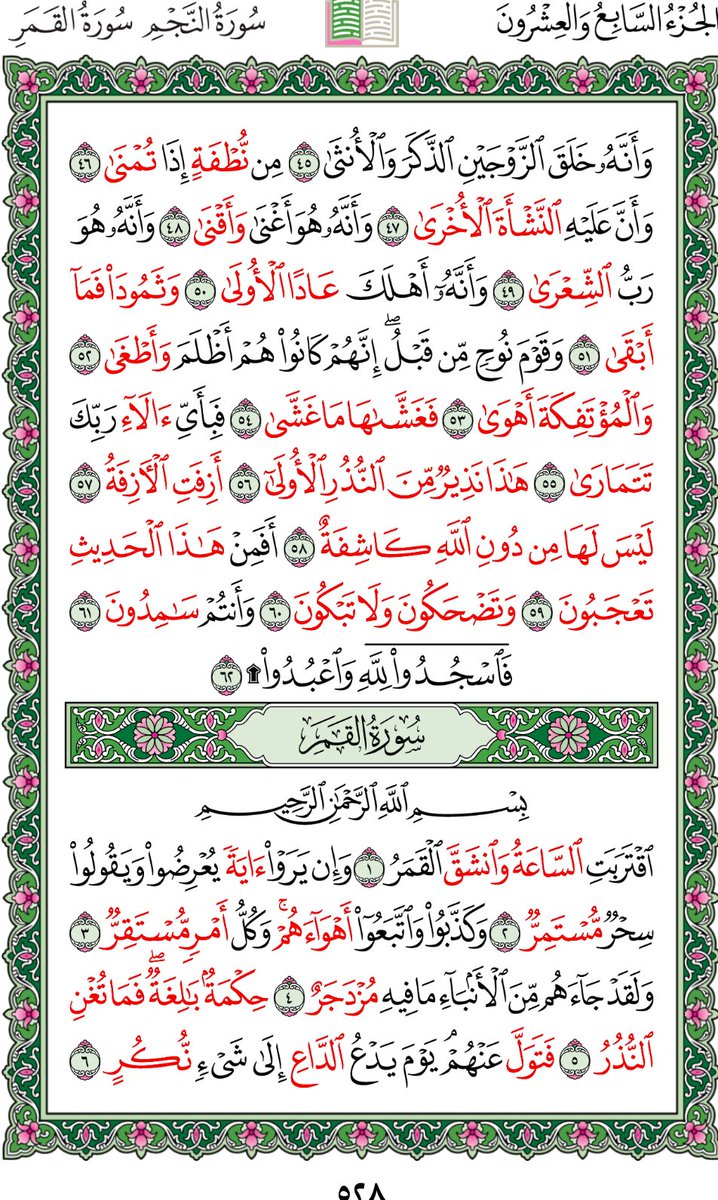 الجُزْءُ السَّابِعُ وَالْعِشْرُونَ سُورَةُ النَّجْمِ سُورَةُ القَمَرِ
وَأَنَّهُۥ خَلَقَ ٱلزَّوۡجَيۡنِ ٱلذَّكَرَ وَٱلۡأُنثَىٰ ٤٥ مِن نُّطۡفَةٍ إِذَا تُمۡنَىٰ ٤٦
وَأَنَّ عَلَيۡهِ ٱلنَّشۡأَةَ ٱلۡأُخۡرَىٰ ٤٧ وَأَنَّهُۥ هُوَ أَغۡنَىٰ وَأَقۡنَىٰ ٤٨ وَأَنَّهُۥ هُوَ
رَبُّ ٱلشِّعۡرَىٰ ٤٩ وَأَنَّهُۥٓ أَهۡلَكَ عَادًا ٱلۡأُولَىٰ ٥٠ وَثَمُودَاْ فَمَآ
أَبۡقَىٰ ٥١ وَقَوۡمَ نُوحٖ مِّن قَبۡلُۖ إِنَّهُمۡ كَانُواْ هُمۡ أَظۡلَمَ وَأَطۡغَىٰ ٥٢
وَٱلۡمُؤۡتَفِكَةَ أَهۡوَىٰ ٥٣ فَغَشَّىٰهَا مَا غَشَّىٰ ٥٤ فَبِأَيِّ ءَالَآءِ رَبِّكَ
تَتَمَارَىٰ ٥٥ هَٰذَا نَذِيرٞ مِّنَ ٱلنُّذُرِ ٱلۡأُولَىٰٓ ٥٦ أَزِفَتِ ٱلۡأٓزِفَةُ ٥٧
لَيۡسَ لَهَا مِن دُونِ ٱللَّهِ كَاشِفَةٌ ٥٨ أَفَمِنۡ هَٰذَا ٱلۡحَدِيثِ
تَعۡجَبُونَ ٥٩ وَتَضۡحَكُونَ وَلَا تَبۡكُونَ ٦٠ وَأَنتُمۡ سَٰمِدُونَ ٦١
فَٱسۡجُدُواْۤ لِلَّهِۤ وَٱعۡبُدُواْ ۩ ٦٢
سُورَةُ القَمَرِ
بِسۡمِ ٱللَّهِ ٱلرَّحۡمَٰنِ ٱلرَّحِيمِ
ٱقۡتَرَبَتِ ٱلسَّاعَةُ وَٱنشَقَّ ٱلۡقَمَرُ ١ وَإِن يَرَوۡاْ ءَايَةٗ يُعۡرِضُواْ وَيَقُولُواْ
سِحۡرٞ مُّسۡتَمِرّٞ ٢ وَكَذَّبُواْ وَٱتَّبَعُوٓاْ أَهۡوَآءَهُمۡۚ وَكُلُّ أَمۡرٖ مُّسۡتَقِرّٞ ٣
وَلَقَدۡ جَآءَهُم مِّنَ ٱلۡأَنۢبَآءِ مَا فِيهِ مُزۡدَجَرٌ ٤ حِكۡمَةُۢ بَٰلِغَةٞۖ فَمَا تُغۡنِ
ٱلنُّذُرُ ٥ فَتَوَلَّ عَنۡهُمۡۘ يَوۡمَ يَدۡعُ ٱلدَّاعِ إِلَىٰ شَيۡءٖ نُّكُرٍ ٦
٥٢٨